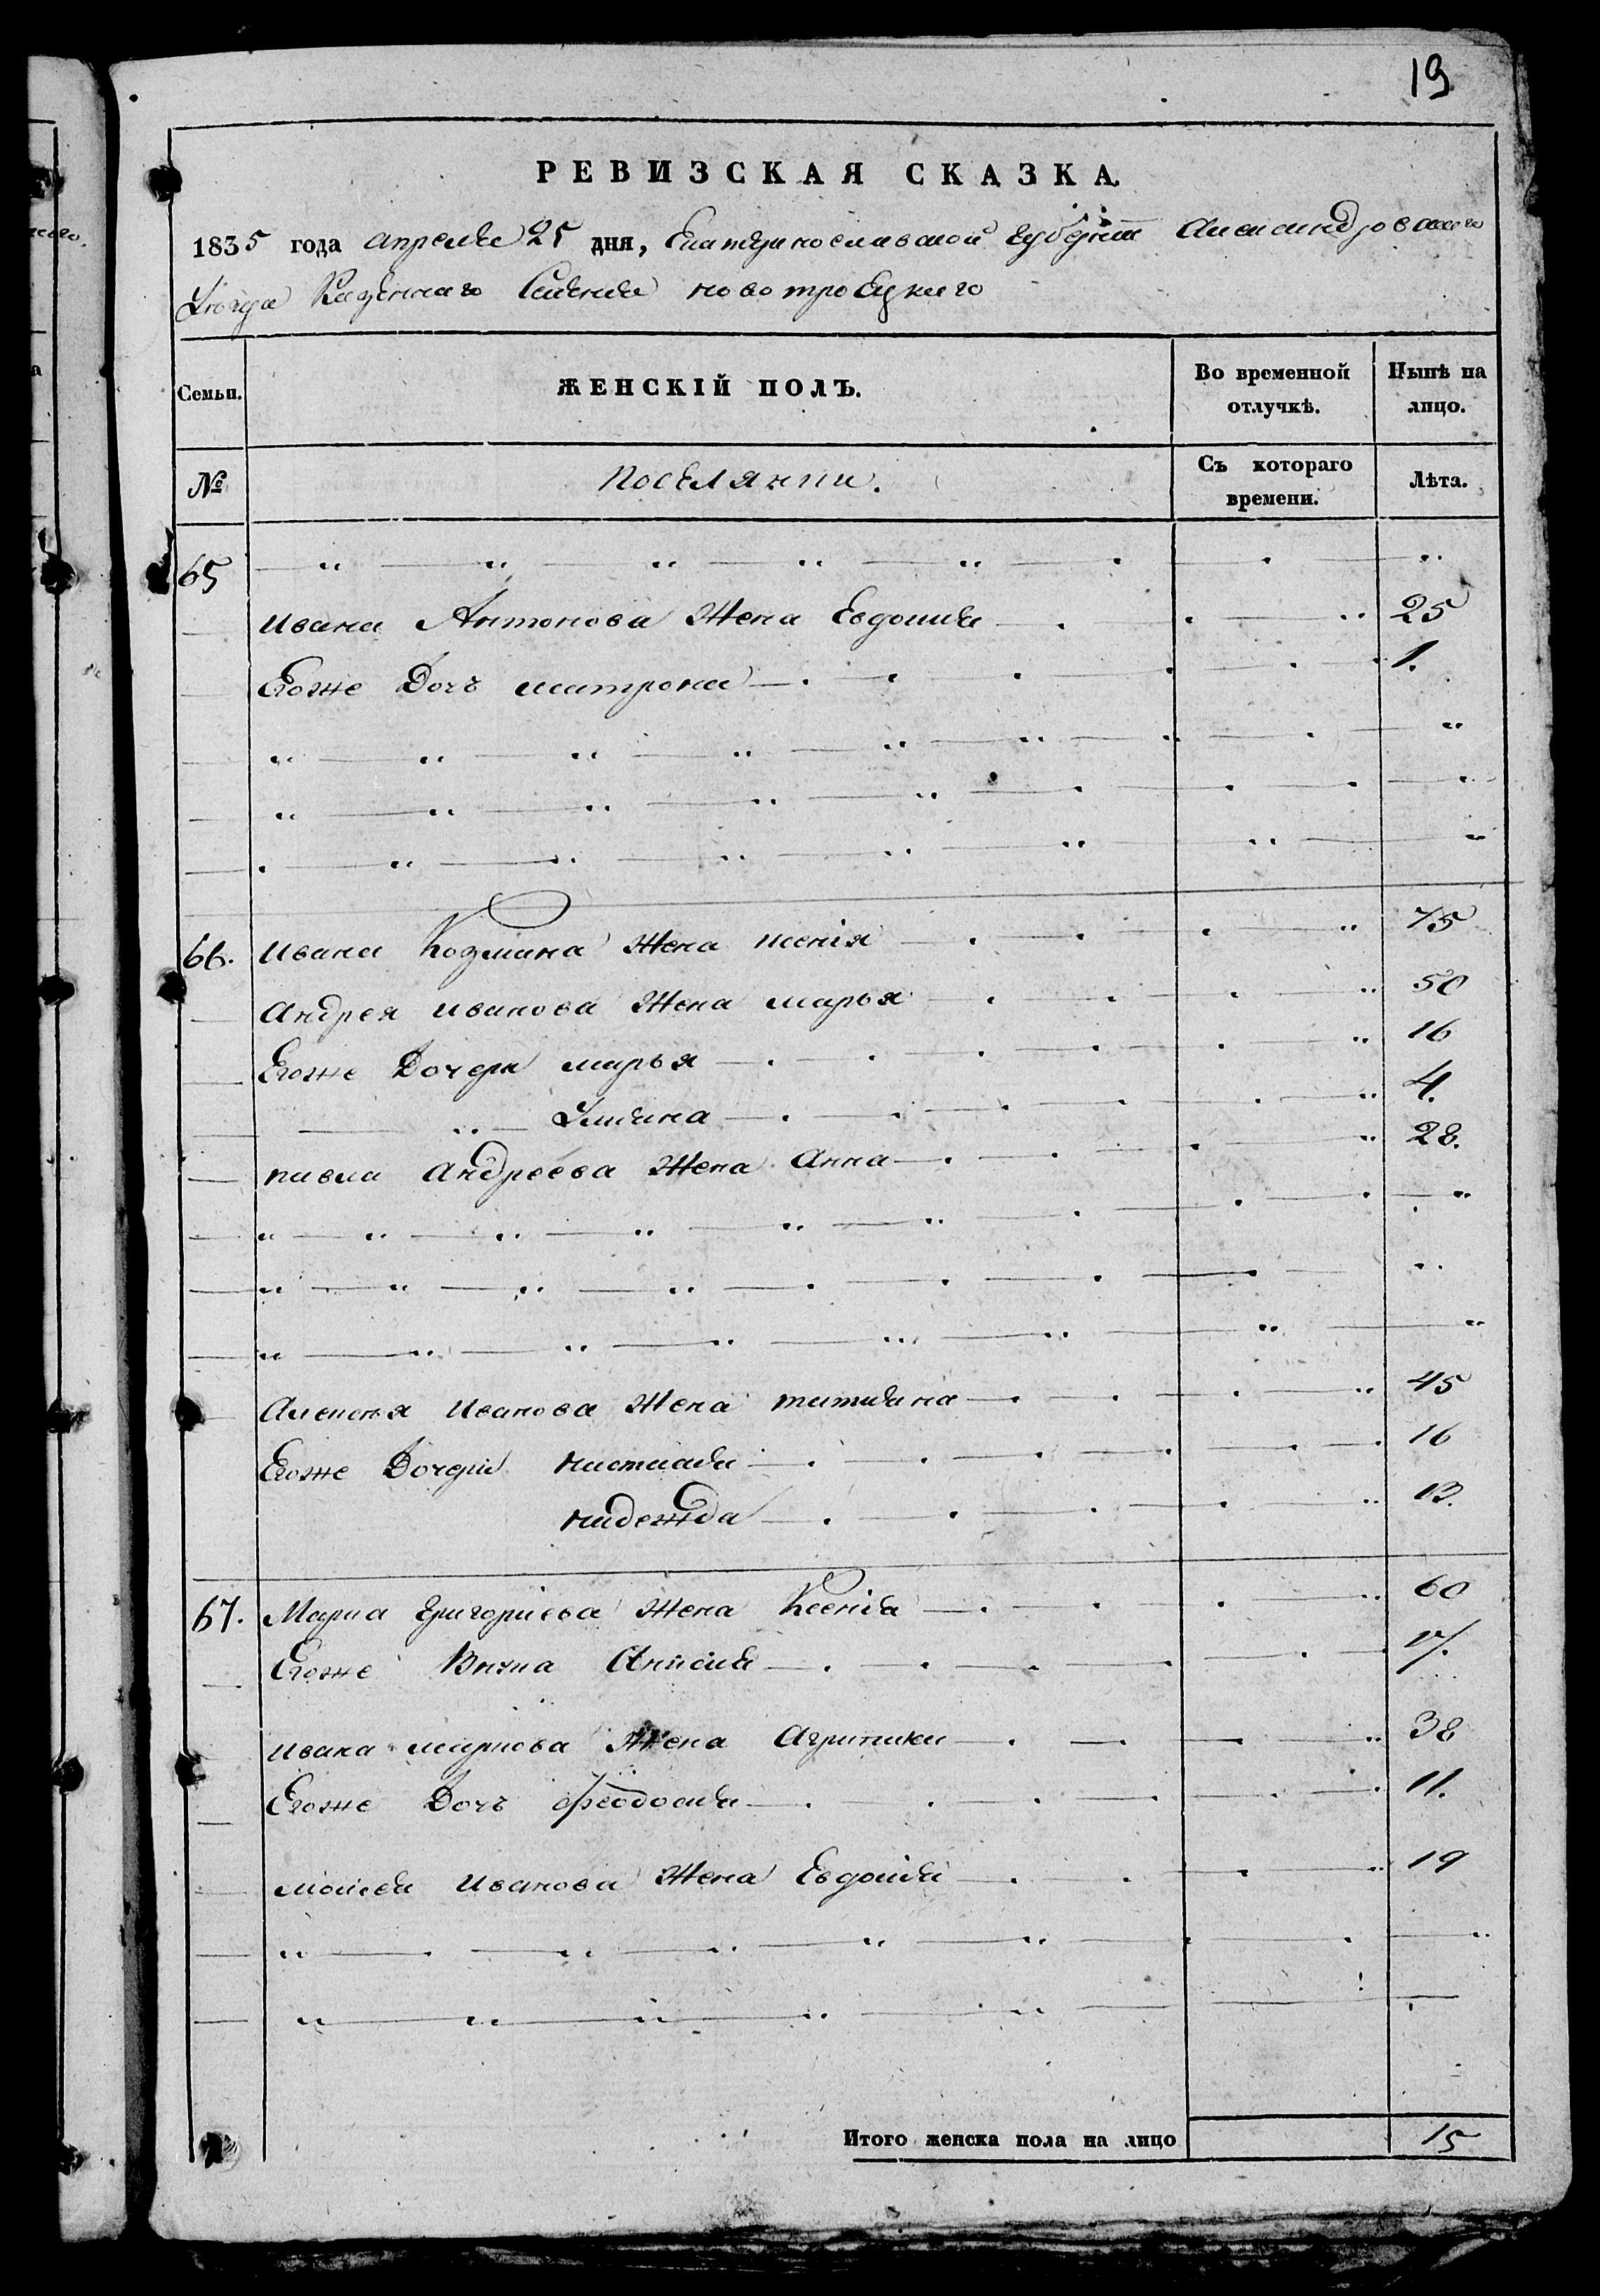 19
РЕВИЗСКАЯ СКАЗКА
1835 года апреля 25 дня, Екатеринославской губернии Александровского
Уезда Казенного Селения новотроецкого
Семьи. ЖЕНСКІЙ ПОЛЪ. Во временной отлучкѣ. Нынѣ на лицо.
№ Поселянки. Съ котораго времени. Лѣта.
65
Ивана Антонова Жена Евдокия 25
Егоже Дочь матрона 1.
66. Ивана Козмина Жена ксенія 75
Андрея Иванова Жена марья 50
Егоже Дочери марья 16
Ульяна 4.
павла Андреева Жена Анна 28.
Алексея Иванова Жена татияна 45
Егоже Дочери настасия 16
надежда 13.
67. Марка Григориева Жена Ксения 60
Егоже Внука Анисия 17.
Ивана маркова Жена Агрипина 38
Егоже Дочь феодосия 11.
моисея Иванова Жена Евдокия 19
Итого женска пола на лицо 15